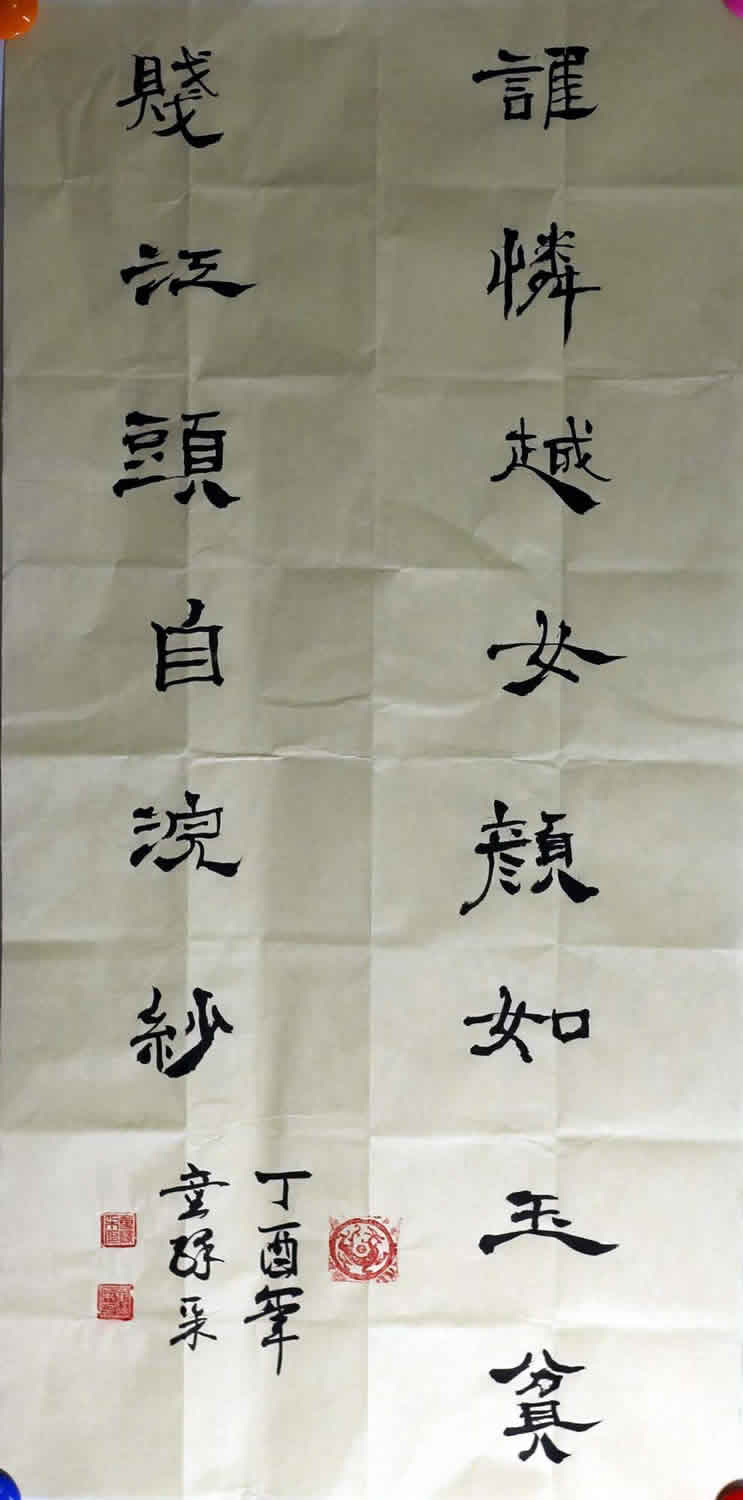 誰憐越女顔如玉貧
賤江頭自浣紗
丁酉年
童